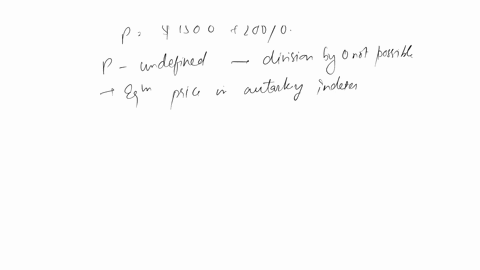 P = 4 1500 + 200/0.
P - undefined — division by 0 not possible
→ Eqm price in autarky indeter